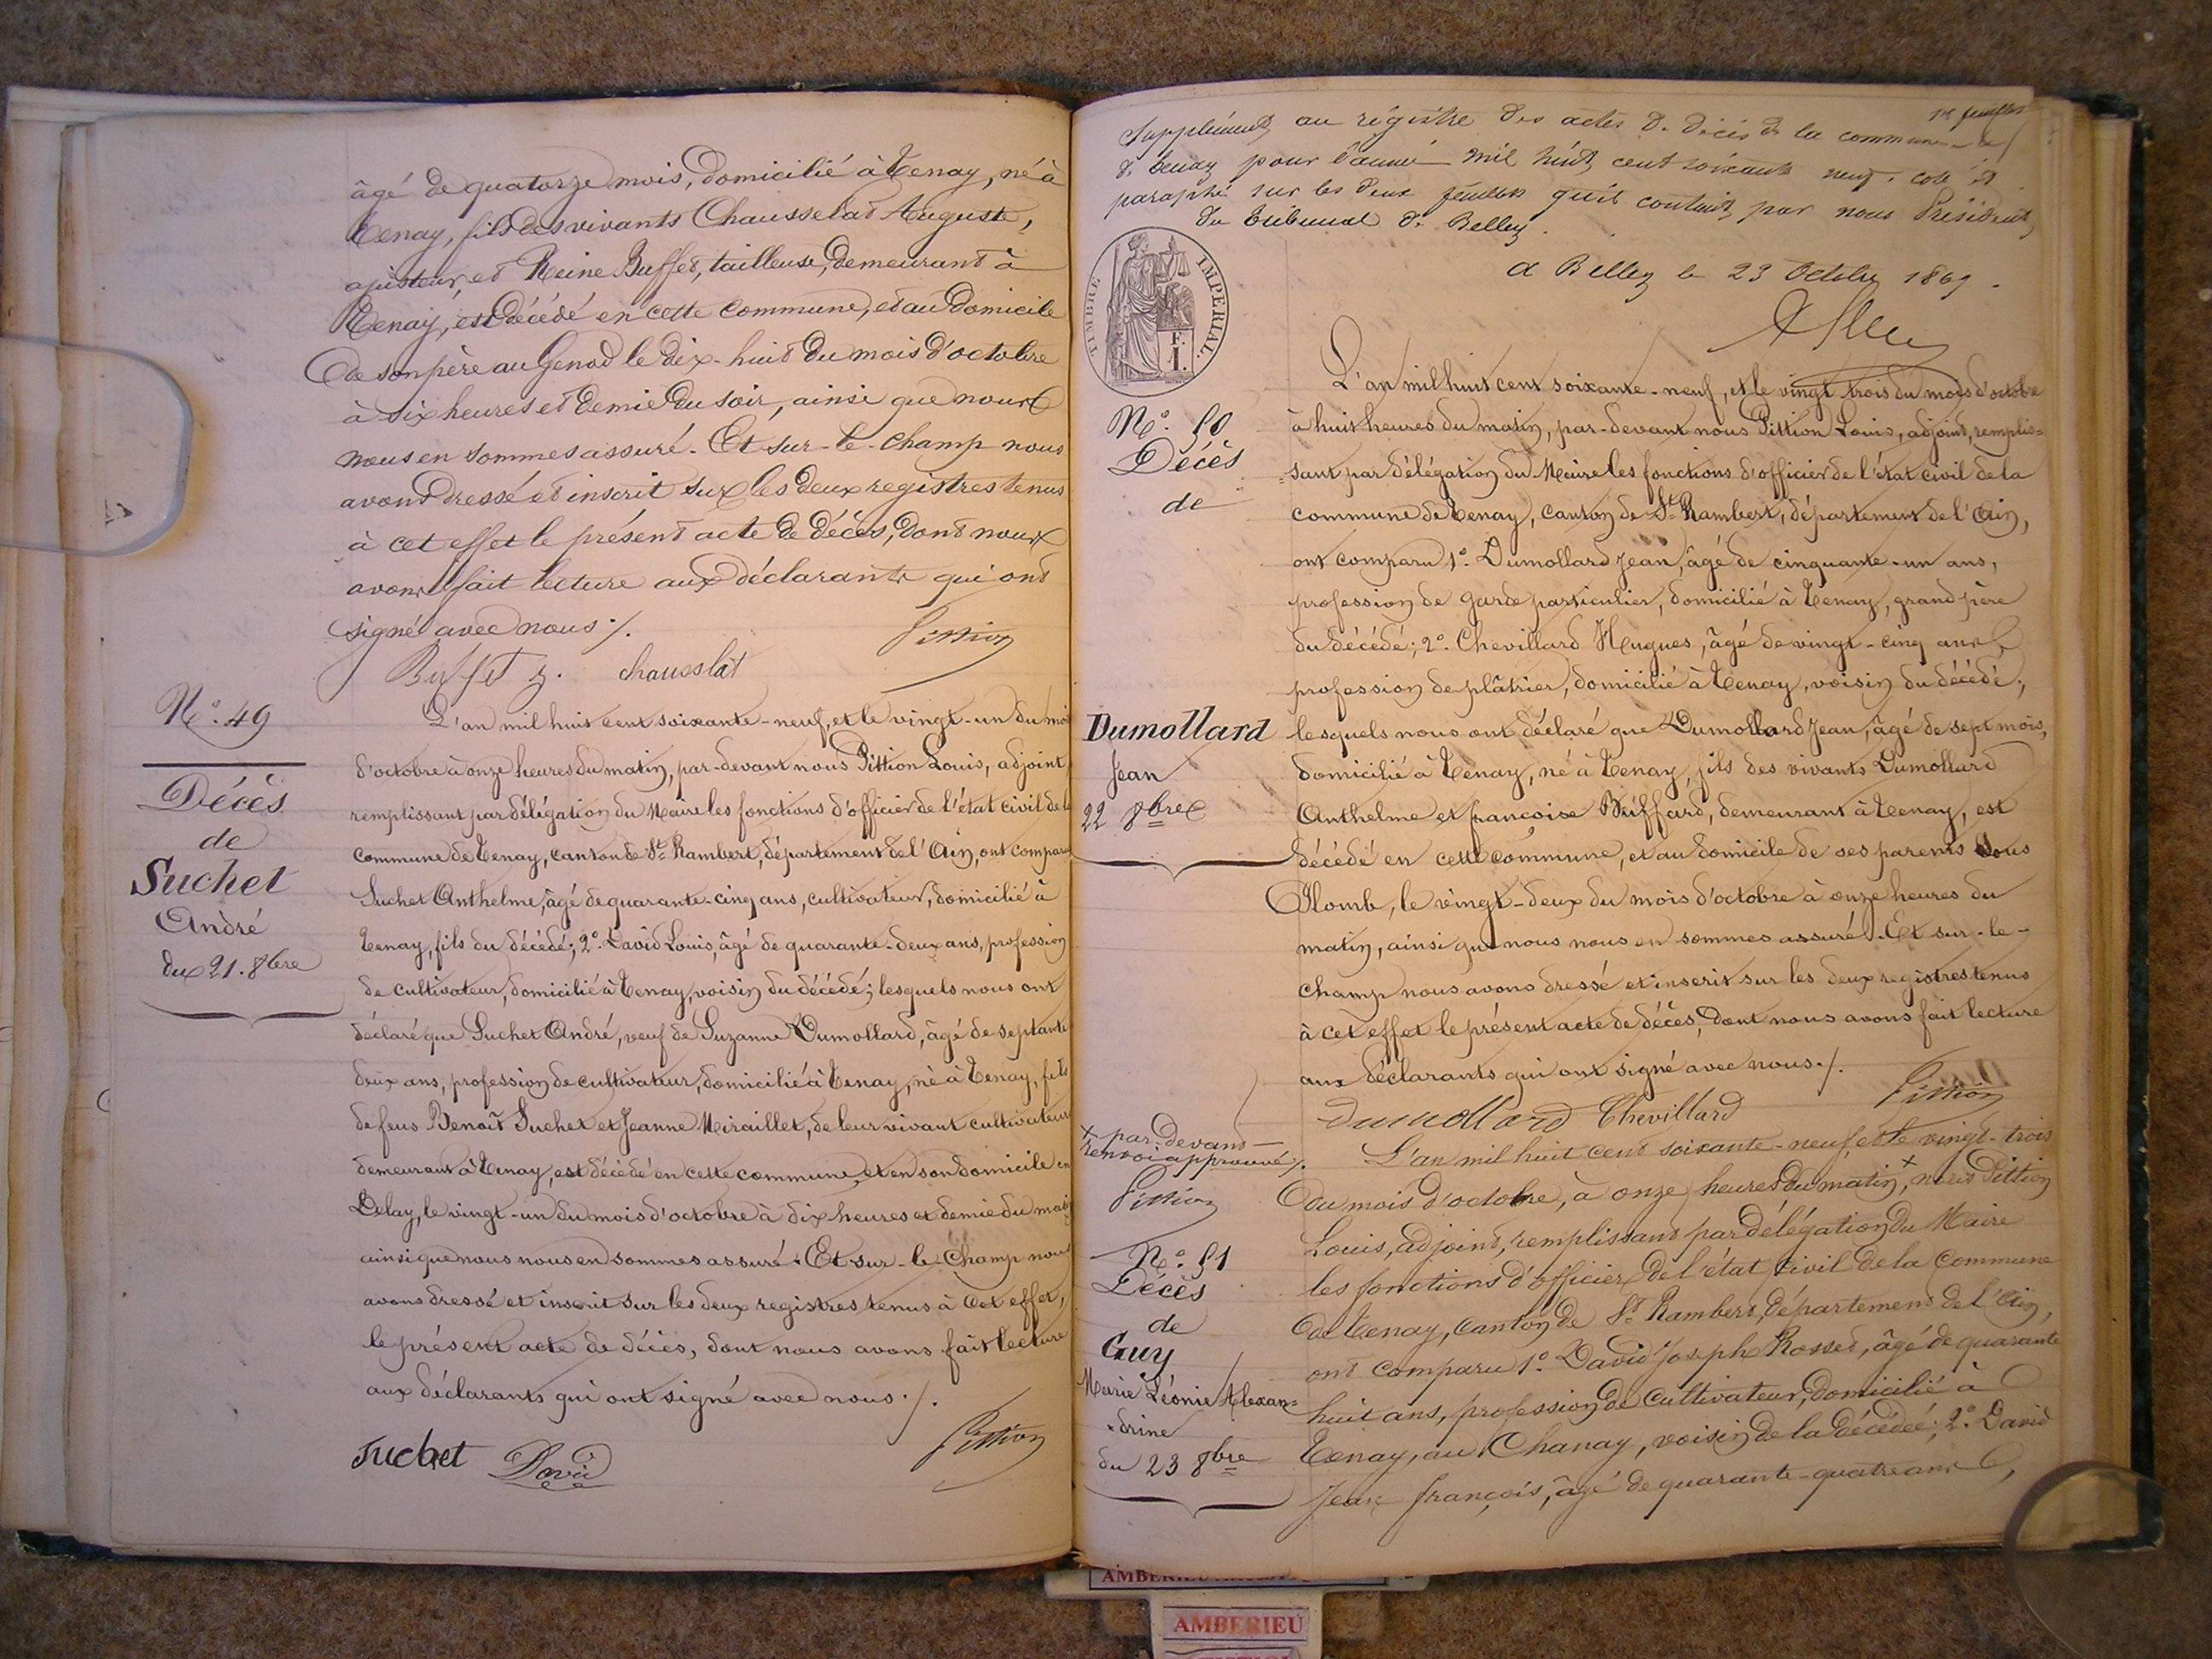 âgé de quatorze mois, domicilié à Tenay, né à
Tenay, fils des vivants Chausselat Auguste,
ajusteur, et Reine Buffet, tailleuse, demeurant à
Tenay, est décédé en cette commune, et au domicile
de son père au Genod le dix-huit du mois d'octobre
à six heures et demie du soir, ainsi que nous
nous en sommes assuré. Et sur-le-champ nous
avons dressé et inscrit sur les deux registres tenus
à cet effet le présent acte de décès, dont nous
avons fait lecture aux déclarants qui ont
signé avec nous ./.
Pittion
Buffet chausslat
N.° 49
Décès
de
Suchet
André
du 21. 8bre
L'an mil huit cent soixante-neuf, et le vingt-un du mois
d'octobre à onze heures du matin, par-devant nous Pittion Louis, adjoint,
remplissant par délégation du Maire les fonctions d'officier de l'état civil de la
commune de Tenay, canton de St Rambert, département de l'Ain, ont comparu
Suchet Anthelme, âgé de quarante-cinq ans, cultivateur, domicilié à
Tenay, fils du décédé; 2° David Louis, âgé de quarante-deux ans, profession
de cultivateur, domicilié à Tenay, voisin du décédé; lesquels nous ont
déclaré que Suchet André, veuf de Suzanne Dumollard, âgé de septante
deux ans, profession de cultivateur, domicilié à Tenay, né à Tenay, fils
de feus Benoît Suchet et Jeanne Miraillet, de leur vivant cultivateurs
demeurant à Tenay, est décédé en cette commune, et en son domicile en
Delay, le vingt-un du mois d'octobre à dix heures et demie du matin
ainsi que nous nous en sommes assuré. Et sur-le-champ nous
avons dressé et inscrit sur les deux registres tenus à cet effet,
le présent acte de décès, dont nous avons fait lecture
aux déclarants qui ont signé avec nous ./.
Suchet David Pittion
Supplément au régistre des actes de décès de la commune
de Tenay pour l'année mil huit cent soixante neuf, coté et
paraphé sur les deux feuillets qu'il contient, par nous Président
du tribunal de Belley.
A Belley le 23 Octobre 1869.
TIMBRE IMPERIAL.
F.
1.
N.° 50
Décès
de
Dumollard
Jean
22 8bre
L'an mil huit cent soixante-neuf, et le vingt-trois du mois d'octobre
à huit heures du matin, par-devant nous Pittion Louis, adjoint, remplis=
=sant par délégation du Maire les fonctions d'officier de l'état civil de la
commune de Tenay, canton de St Rambert, département de l'Ain,
ont comparu 1° Dumollard Jean, âgé de cinquante-un ans,
profession de garde particulier, domicilié à Tenay, grand père
du décédé; 2° Chevillard Hugues, âgé de vingt-cinq ans,
profession de plâtrier, domicilié à Tenay, voisin du décédé;
lesquels nous ont déclaré que Dumollard Jean, âgé de sept mois,
domicilié à Tenay, né à Tenay, fils des vivants Dumollard
Anthelme et françoise Buffard, demeurant à Tenay, est
décédé en cette commune, et au domicile de ses parents Sous
Plomb, le vingt-deux du mois d'octobre à onze heures du
matin, ainsi que nous nous en sommes assuré. Et sur-le-
champ nous avons dressé et inscrit sur les deux registres tenus
à cet effet le présent acte de décès, dont nous avons fait lecture
aux déclarants qui ont signé avec nous ./.
Dumollard Chevillard Pittion
x par-devant
renvoi approuvé ./.
Pittion
N.° 51
Décès
de
Guy
Marie Léonie Alexan=
=drine
du 23 8bre
L'an mil huit cent soixante-neuf, et le vingt-trois
du mois d'octobre, à onze heures du matin x, nous Pittion
Louis, adjoint, remplissant par délégation du Maire
les fonctions d'officier de l'état civil de la commune
de Tenay, canton de St Rambert, département de l'Ain,
ont comparu 1° David Joseph Rosset, âgé de quarante
huit ans, profession de cultivateur, domicilié à
Tenay, au Chanay, voisin de la décédée; 2° David
Jean françois, âgé de quarante-quatre ans,
AMBERIEU
AMBERIEU